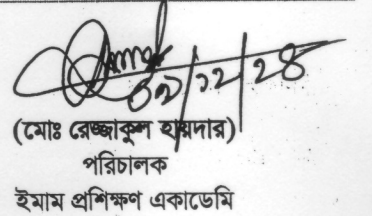 ০৯/১২/২৪
(মোঃ রেজ্জাকুল হায়দার)
পরিচালক
ইমাম প্রশিক্ষণ একাডেমি